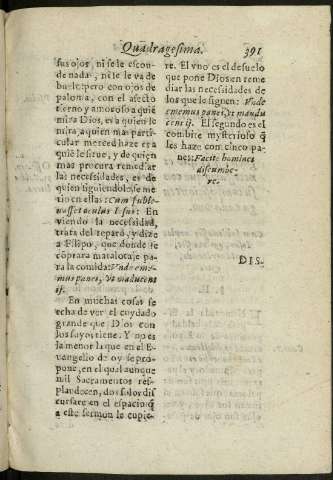 Quadragesima. 391
sus ojos, ni se le escon-
de nada, ni se le va de
buelo pero con ojos de
paloma, con el afecto
tierno y amoroso a quiē
mira Dios, es a quien le
mira, a quien mas parti-
cular merced haze era
quiē le sirue, y de quien
mas procura remediar
las necessidades, es de
quien siguiendole, se me
tio en ellas: Cum suble-
uasset oculus Iesus: En
viendo la necessidad,
trata del reparo, y dize
a Filipo, que donde se
cōprara matalotaje pa-
ra la comida: Vnde eme-
mus panes, vt māducent
ij.
En muchas cosas se
echa de ver el cuydado
grande que Dios con
los suyos tiene. Y no es
la menor la que en el E-
uangelio de oy se pro-
pone, en el qual aunque
mil Sacramentos res-
plandecen, dos solos dis
cursare en el espacio q̄
a este sermon le cupie-
re. El vno es el desuelo
que pone Dios en reme
diar las necessidades de
los que le siguen: Vnde
ememus panes, vt mandu
cent ij. El segundo es el
combite mysterioso q̄
les haze con cinco pa-
nes: Facite homines
discumbe-
re.
DIS-